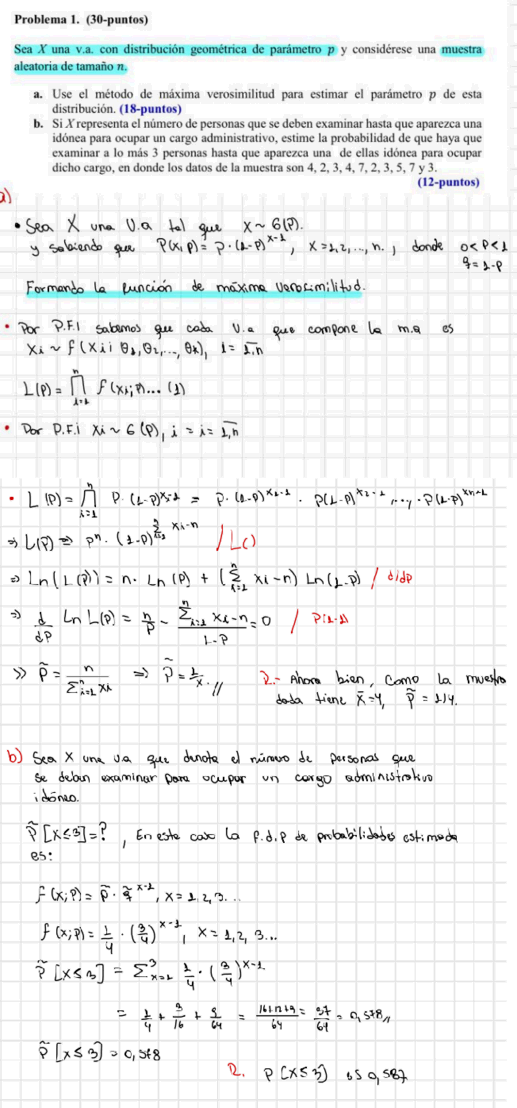 Problema 1. (30-puntos)
Sea X una v.a. con distribución geométrica de parámetro p y considérese una muestra
aleatoria de tamaño n.
a. Use el método de máxima verosimilitud para estimar el parámetro p de esta
distribución. (18-puntos)
b. Si X representa el número de personas que se deben examinar hasta que aparezca una
idónea para ocupar un cargo administrativo, estime la probabilidad de que haya que
examinar a lo más 3 personas hasta que aparezca una de ellas idónea para ocupar
dicho cargo, en donde los datos de la muestra son 4, 2, 3, 4, 7, 2, 3, 5, 7 y 3.
(12-puntos)
a)
• Sea X una V.a tal que X ~ G(P).
y sabiendo que P(X,P) = P · (1-P)^{x-1}, X = 1,2,..., n. , donde 0<P<1
q = 1-P
Formando la función de máxima verosimilitud.
• Por P.F.I sabemos que cada V.a que compone la m.a es
Xi ~ f(Xi; θ1, θ2,..., θk), i = 1,n
L(P) = ∏_{i=1}^{n} f(xi; P)... (1)
• Por P.F.i Xi ~ G(P), i = i = 1,n
• L(P) = ∏_{i=1}^{n} P · (1-P)^{xi-1} = P · (1-P)^{x1-1} · P(1-P)^{x2-1} ,..., · P(1-P)^{xn-1}
⇒ L(P) = P^n · (1-P)^{∑_{i=1}^{n} xi-n} / L()
⇒ Ln(L(P)) = n · Ln(P) + (∑_{i=1}^{n} xi-n) Ln(1-P) / d/dP
⇒ d/dP Ln L(P) = n/P - (∑_{i=1}^{n} xi-n)/(1-P) = 0 / P(1-P)
⇒ p̃ = n/∑_{i=1}^{n} xi ⇒ p̃ = 1/x̄ //
R.- Ahora bien, como la muestra
dada tiene x̄=4, p̃ = 1/4.
b) Sea X una va que denota el número de personas que
se deban examinar para ocupar un cargo administrativo
idóneo.
P̃[X≤3]=? , En este caso la f.d.p de probabilidades estimada
es:
f(x;P) = p̃ · q̃^{x-1}, x = 1,2,3...
f(x;p) = 1/4 · (3/4)^{x-1}, x = 1,2,3...
P̃[X≤3] = ∑_{x=1}^{3} 1/4 · (3/4)^{x-1}
= 1/4 + 3/16 + 9/64 = (16+12+9)/64 = 37/64 = 0,578 //
P̃[X≤3] = 0,578
R. P[X≤3] es 0,587